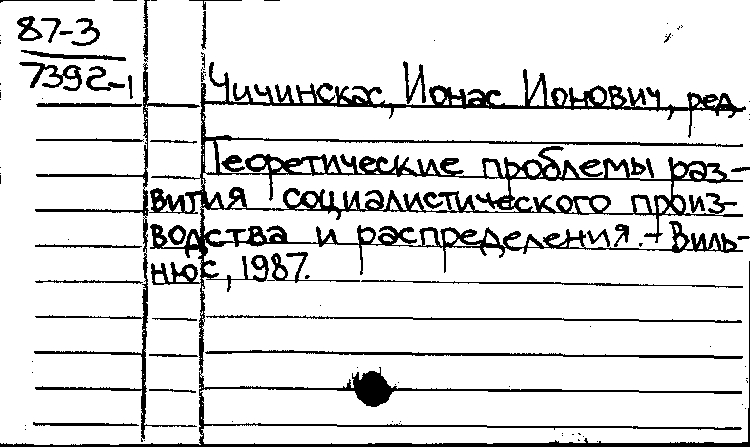 87-3
7392-1
Чичинскас, Ионас Ионович, ред.
Теоретические проблемы раз-
вития социалистического произ-
водства и распределения. - Виль-
нюс, 1987.